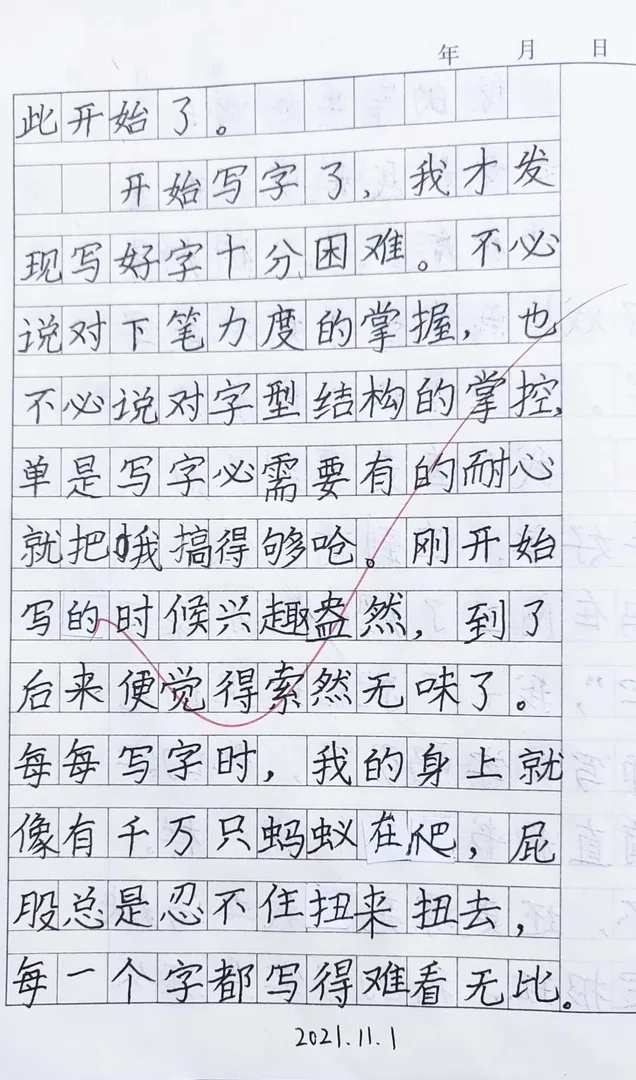 年 月 日
此开始了。
开始写字了，我才发
现写好字十分困难。不必
说对下笔力度的掌握，也
不必说对字型结构的掌控，
单是写字必需要有的耐心
就把我搞得够呛。刚开始
写的时候兴趣盎然，到了
后来便觉得索然无味了。
每每写字时，我的身上就
像有千万只蚂蚁在爬，屁
股总是忍不住扭来扭去，
每一个字都写得难看无比。
2021.11.1